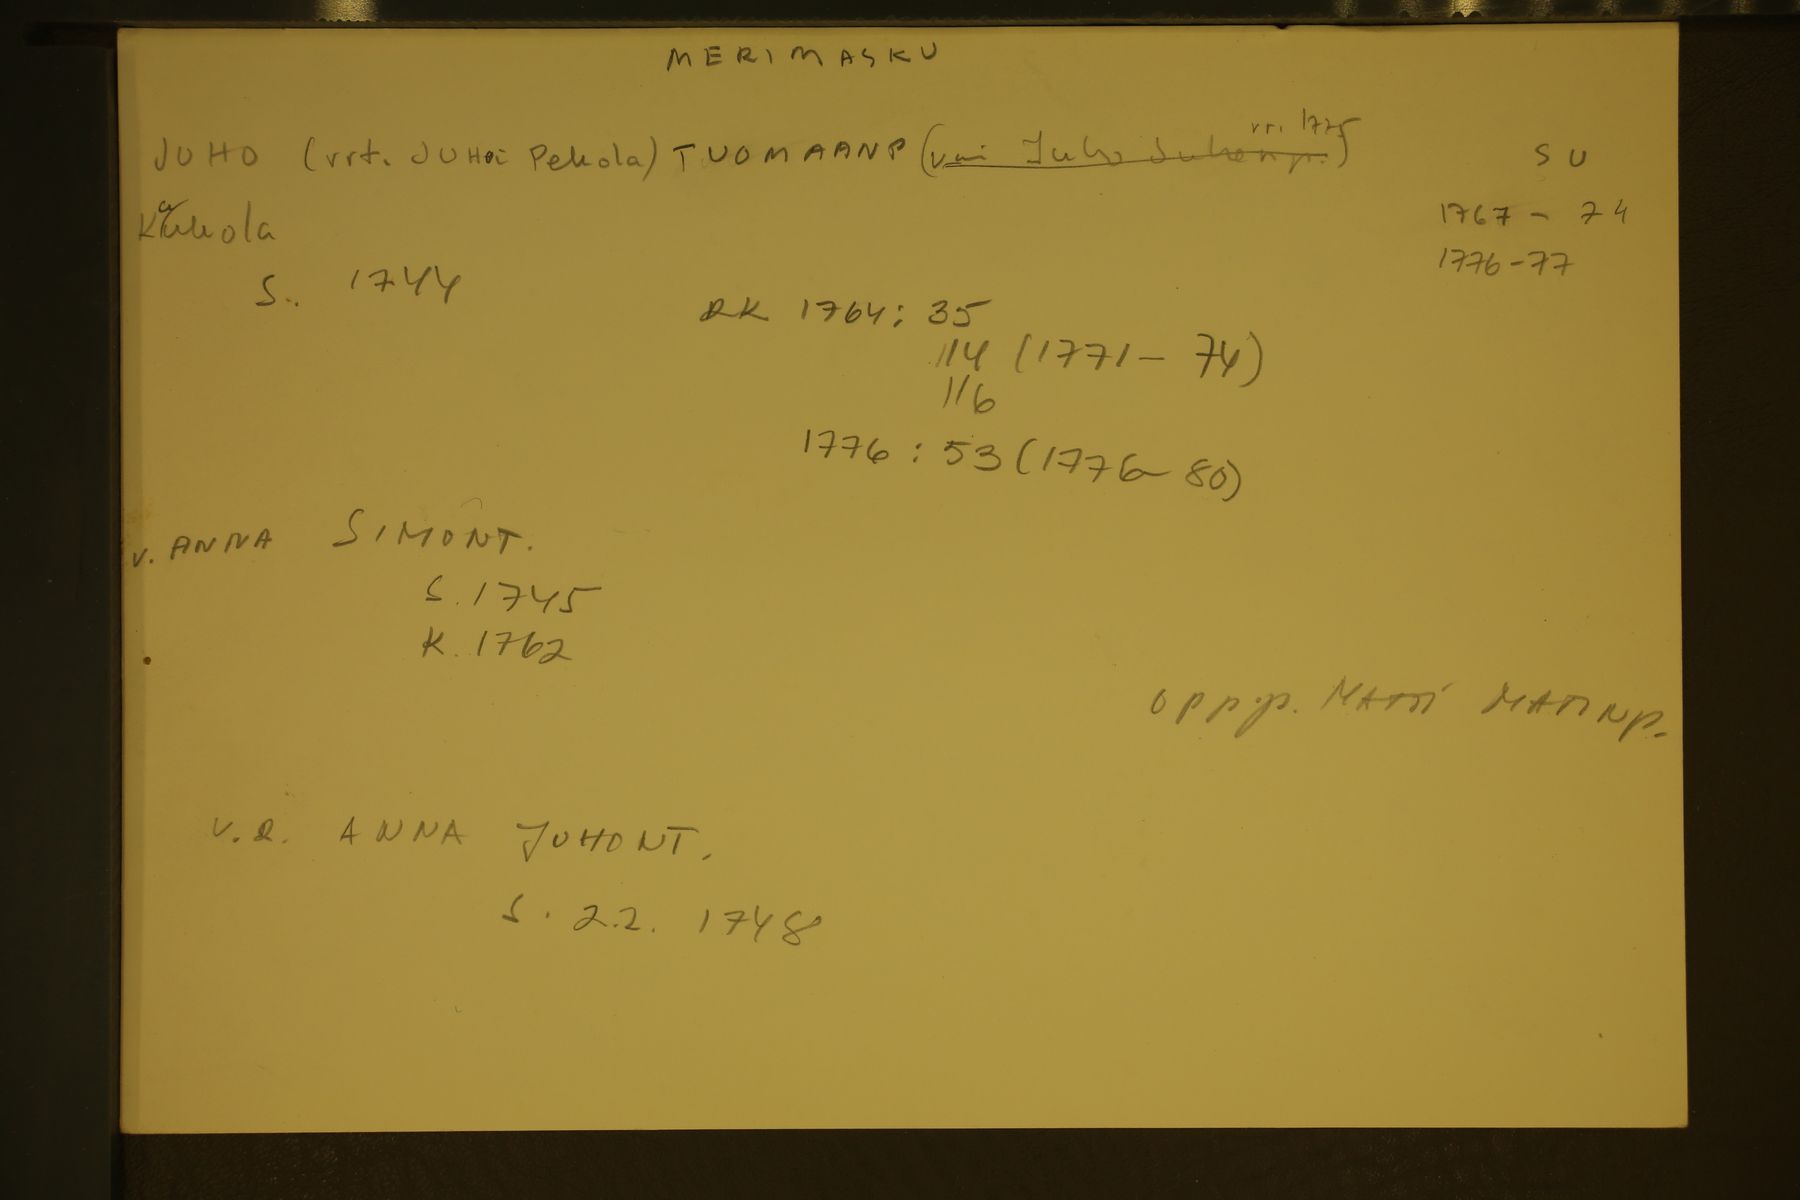 MERIMASKU
JUHO (vrt. JUHO Pekola) TUOMAANP (vai Juho Juhonp.) vr. 1775
SU
Kaukola
1767 - 74
1776-77
S. 1744
RK 1764: 35
114 (1771- 74)
116
1776 : 53 (1776- 80)
v. ANNA SIMONT.
S. 1745
K. 1762
opp.p. MATTI MATINp.
v. 2. ANNA JUHONT.
S. 2.2. 1748